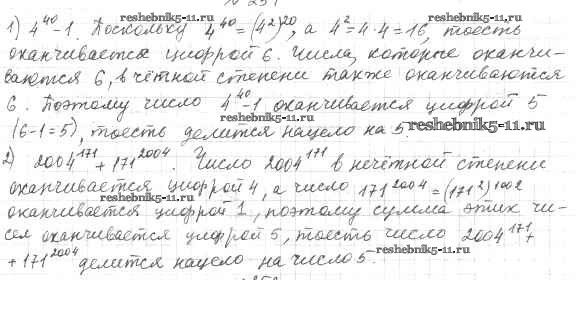 № 251
reshebnik5-11.ru
1) 4^40-1. Поскольку 4^40=(4^2)^20, а 4^2=4·4=16, тоесть
оканчивается цифрой 6. Числа, которые оканчи-
ваются 6, в чётной степени также оканчиваются
6. Поэтому число 4^40-1 оканчивается цифрой 5
reshebnik5-11.ru
(6-1=5), тоесть делится нацело на 5.
reshebnik5-11.ru
2) 2004^171+171^2004. Число 2004^171 в нечётной степени
оканчивается цифрой 4, а число 171^2004=(171^2)^1002
оканчивается цифрой 1, поэтому сумма этих чи-
сел оканчивается цифрой 5, тоесть число 2004^171+
reshebnik5-11.ru
+171^2004 делится нацело на число 5.